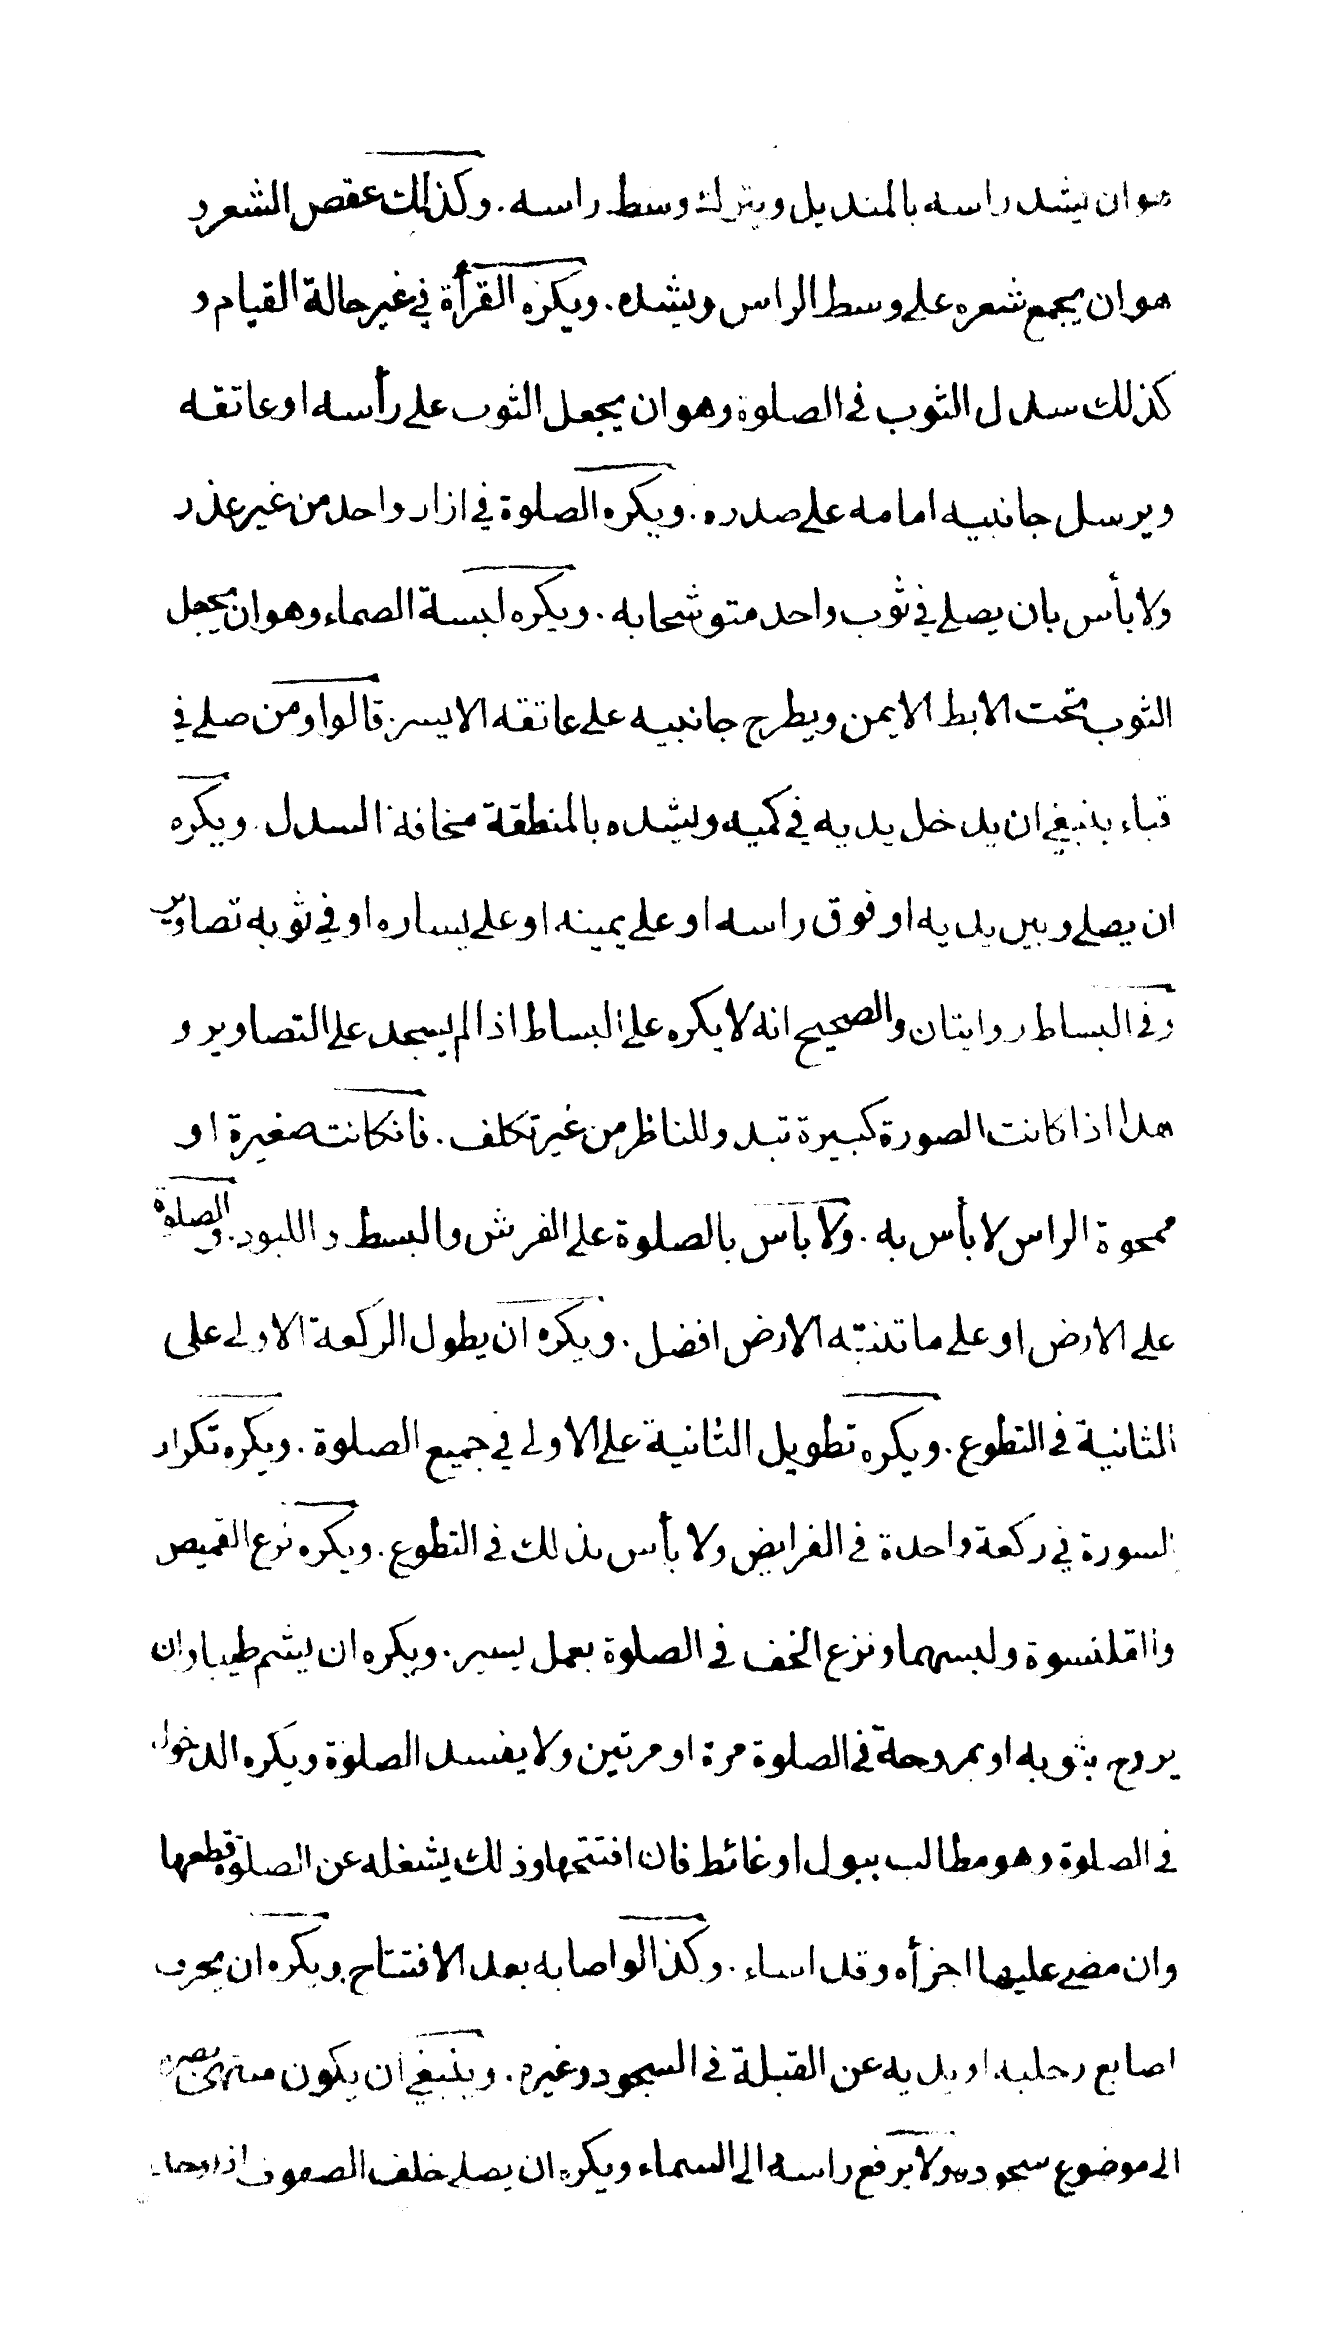 هو ان يشد راسه بالمنديل ويترك وسط راسه . وكذلك عقص الشعر و
هو ان يجمع شعره على وسط الراس ويشده . ويكره القرأة في غير حالة القيام و
كذلك سدل الثوب في الصلوة وهو ان يجعل الثوب على رأسه او عاتقه
ويرسل جانبيه امامه على صدره . ويكره الصلوة في ازار واحد من غير عذر
ولا بأس بان يصلي في ثوب واحد متوشحا به . ويكره لبسة الصماء وهو ان يجعل
الثوب تحت الابط الايمن ويطرح جانبيه على عاتقه الايسر . قالوا ومن صلى في
قباء ينبغي ان يدخل يديه في كميه ويشده بالمنطقة مخافة السدل . ويكره
ان يصلي وبين يديه او فوق راسه او على يمينه او على يساره او في ثوبه تصاوير
وفي البساط روايتان والصحيح انه لا يكره على البساط اذا لم يسجد على التصاوير و
هذا اذا كانت الصورة كبيرة تبدو للناظر من غير تكلف . فانكانت صغيرة او
ممحوة الراس لا بأس به . ولا بأس بالصلوة على الفرش والبسط واللبود . والصلوة
على الارض او على ما تنبته الارض افضل . ويكره ان يطول الركعة الاولى على
الثانية في التطوع . ويكره تطويل الثانية على الاولى في جميع الصلوة . ويكره تكرار
السورة في ركعة واحدة في الفرايض ولا بأس بذلك في التطوع . ويكره نزع القميص
والقلنسوة ولبسهما ونزع الخف في الصلوة بعمل يسير . ويكره ان يشم طيبا وان
يروح بثوبه او بمروحة في الصلوة مرة او مرتين ولا يفسد الصلوة ويكره الدخول
في الصلوة وهو مطالب ببول او غائط فان افتتحها وذلك يشغله عن الصلوة قطعها
وان مضى عليها اجزأه وقد اساء . وكذا لو اصابه بعد الافتتاح . ويكره ان يحرف
اصابع رجليه او يديه عن القبلة في السجود وغيره . وينبغي ان يكون منتهى بصره
الى موضوع سجوده ولا يرفع راسه الى السماء ويكره ان يصلي خلف الصفوف اذا وجد